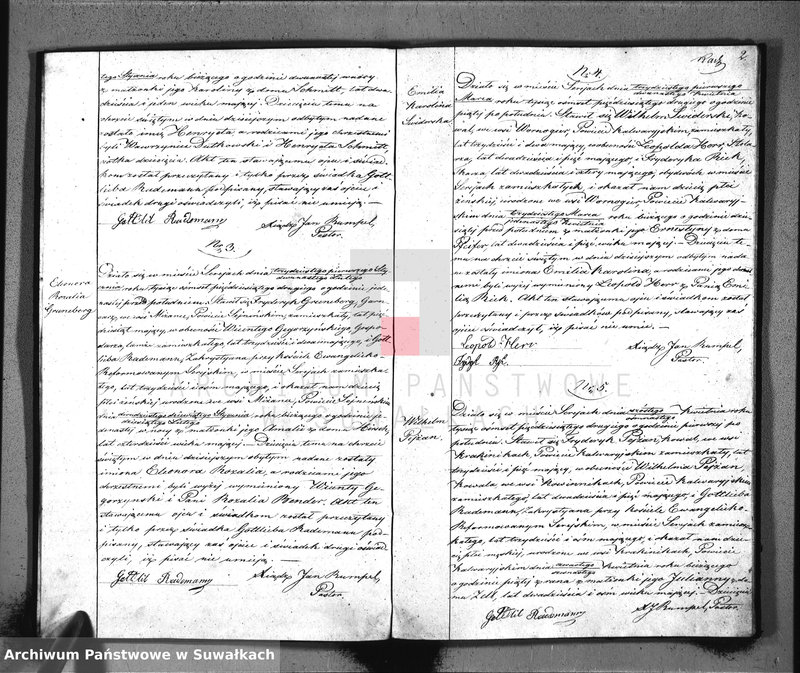 tego Stycznia roku bieżącego o godzinie dwunastej w nocy
z małżonki jego Karoliny z domu Schmitt, lat dwa-
dzieścia i jeden wieku mającej. Dziecięciu temu na
chrzcie świętym w dniu dzisiejszym odbytym nadane
zostało imię Henryeta, a rodzicami jego chrzestnemi
byli Wawrzyniec Dutkowski i Henryeta Schmitt,
ciotka dziecięcia. Akt ten stawającemu ojcu i świad-
kom został przeczytany i tylko przez świadka Gott-
lieba Radzmanna podpisany, stawający zaś ojciec i
świadek drugi oświadczyli, iż pisać nie umieją. —
Gottlib Radzmanny
Xiądz Jan Rumpel,
Pastor.
No 3.
Eleonora
Rozalia
Greneberg
Działo się w mieście Serejach dnia trzydziestego pierwszego Sty-
cznia dwunastego Lutego
roku tysiąc ośmset pięćdziesiątego drugiego o godzinie je-
denastej przed południem. Stawił się Frydryk Greneberg,
we wsi Mizanie, Powiecie Sejneńskim, zamieszkały, lat pięć-
dziesiąt mający, w obecności Wicentego Gegorzynskiego, Gospo-
darza, tamże zamieszkałego, lat trzydzieści dwa mającego, i Gott-
lieba Radzmann, Zakrystyana przy kościele Ewangelicko-
Reformowanym Serejskim, w mieście Serejach zamieszka-
łego, lat trzydzieści i ośm mającego, i okazał nam dziecię
płci żeńskiej, urodzone we wsi Mizanie, Powiecie Sejneńskim
dnia dwudziestego dziewiątego Stycznia
dziesiątego Lutego
roku bieżącego o godzinie je-
denastej w nocy z małżonki jego Amalii z domu
lat czterdzieści wieku mającej. — Dziecięciu temu na chrzcie
świętym w dniu dzisiejszym odbytym nadane zostały
imiona Eleonora Rozalia, a rodzicami jego
chrzestnemi byli wyżej wymieniony Wicenty Ge-
gorzynski i Pani Rozalia Bender. Akt ten
stawającemu ojcu i świadkom został przeczytany
i tylko przez świadka Gottlieba Radzmann pod-
pisany, stawający zaś ojciec i świadek drugi oświad-
czyli, iż pisać nie umieją. —
Gottlib Radzmanny
Xiądz Jan Rumpel,
Pastor.
2
No 4.
Emilia
Karolina
Swiderska
Działo się w mieście Serejach dnia trzydziestego pierwszego
Marca dwunastego Kwietnia
roku tysiąc ośmset pięćdziesiątego drugiego o godzinie
piątej po południu. Stawił się Wilhelm Swiderski, Ko-
wal, we wsi Wornogir, Powiecie Kalwaryjskim, zamieszkały,
lat trzydzieści i dwa mający, w obecności Leopolda Herr, Stola-
rza, lat dwadzieścia i pięć mającego, i Frydryka Rick,
lat dwadzieścia i cztery mającego, obydwóch w mieście
Serejach zamieszkałych, i okazał nam dziecię płci
żeńskiej urodzone we wsi Wornogir, Powiecie Kalwaryj-
skim dnia trzydziestego Marca
jedenastego Kwietnia
roku bieżącego o godzinie dzie-
siątej przed południem z małżonki jego Ernestyny z domu
Pfeifer, lat dwadzieścia i pięć wieku mającej. — Dziecięciu te-
mu na chrzcie świętym w dniu dzisiejszym odbytym nada-
ne zostały imiona Emilia Karolina, a rodzicami jego chrze-
stnemi byli wyżej wymieniony Leopold Herr z Panią Emi-
lią Rick. Akt ten stawającemu ojcu i świadkom został
przeczytany i przez świadków podpisany, stawający zaś
ojciec oświadczył, iż pisać nie umie. —
Leopold Herr
Xiądz Jan Rumpel,
Pastor.
No 5.
Wilhelm
Pejzan.
Działo się w mieście Serejach dnia szóstego
ośmnastego
Kwietnia roku
tysiąc ośmset pięćdziesiątego drugiego o godzinie pierwszej po
południu. Stawił się Frydryk Pejzan, kowal, we wsi
Krakinikach, Powiecie Kalwaryjskim zamieszkały, lat
trzydzieści i pięć mający, w obecności Wilhelma Pejzan,
kowala, we wsi Kosiornikach, Powiecie Kalwaryjskim
zamieszkałego, lat dwadzieścia i pięć mającego, i Gottlieba
Radzmann, Zakrystyana przy kościele Ewangelicko-
Reformowanym Serejskim, w mieście Serejach zamiesz-
kałego, lat trzydzieści i ośm mającego, i okazał nam dzie-
cię płci męskiej, urodzone we wsi Krakinikach, Powiecie
Kalwaryjskim dnia czwartego
szesnastego
Kwietnia roku bieżącego
o godzinie piątej z rana z małżonki jego Julianny z do-
mu Zelt, lat dwadzieścia i ośm wieku mającej. Dziecięciu
Gottlib Radzmanny
XJ Rumpel, Pastor.
ARCHIWUM PAŃSTWOWE
Archiwum Państwowe w Suwałkach